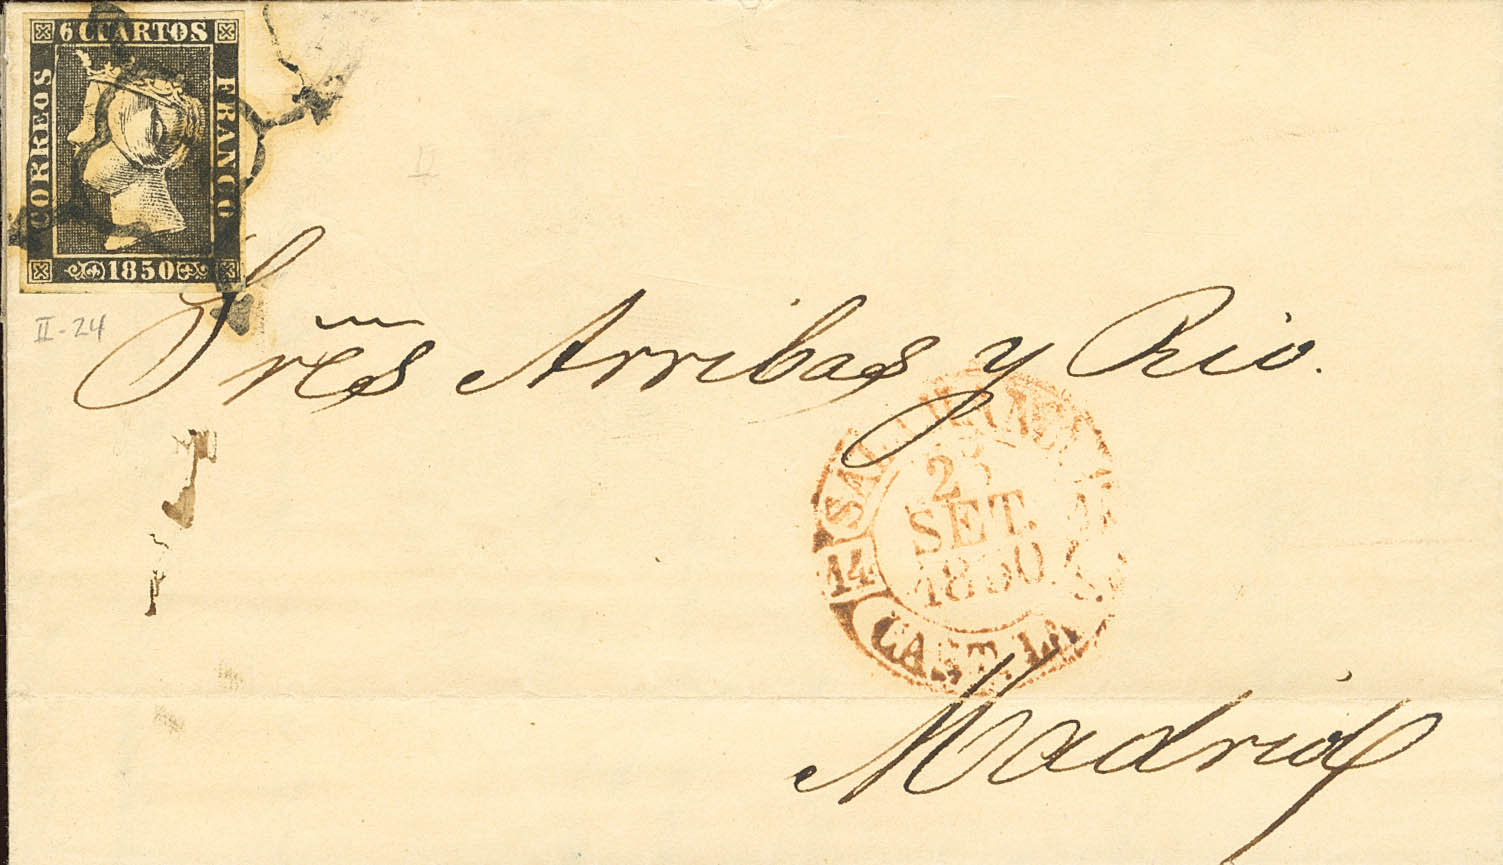 6 CUARTOS
CORREOS
FRANCO
1850
II
II-24
Sres Arribas y Rio.
SALAMANCA
14
25
SET.
1850
CAST. LA
Madrid